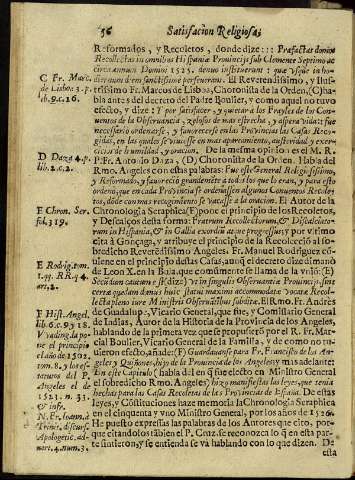 56 Satisfacion Religiosa;
Reformados, y Recoletos, donde dize::: Præfactas domos
Recollectas in omnibus Hispaniæ Provincijs sub Clemente Septimo ac
circa annum Domini 1525. denuo instituerunt: quæ usque in ho-
diernum diem sanctissime perseverant. El Reverendissimo, y Ilus-
trissimo Fr. Marcos de Lisboa, Choronista de la Orden, (C) ha-
bla antes del decreto del Padre Boulier, y como aquel no tuvo
efecto, y dize: Y por satisfacer, y quietar a los Frayles de los Con-
uentos de la Observancia, zelosos de mas estrecha, y aspera vida: fue
necessario ordenarse, y favorecerse en las Provincias las Casas Reco-
gidas, en las quales se viuiesse en mas apartamiento, austeridad, y exer-
cicio de humildad, y oracion. De la mesma opinion es el M. R.
P. Fr. Antonio Daza, (D) Choronista de la Orden. Habla del
Rmo. Angeles con estas palabras: Fue este General Religiosissimo,
y Reformado, y favoreciò grandemente a todos los que lo eran, y para esto
ordenò, que en cada Provincia se señalassen algunos Conventos Recole-
tos, dõde con mas recogimiento se vacasse a la oracion. El Autor de la
Chronologia Seraphica (E) pone el principio de los Recoletos,
y Descalços desta forma: Fratrum Recollectorum, & Discalceato-
rum in Hispania, & in Gallia exordiũ atque progressus; y por vltimo
cita à Gonçaga, y atribuye el principio de la Recoleccion al so-
bredicho Reverēdissimo Angeles. Fr. Manuel Rodriguez cõ-
uiene en el principio destas Casas, aunq el decreto dize dimanò
de Leon X. en la Bula, que comunmente se llama de la vniō: (E)
Secũdum cautum est (dize) vt in singulis Observantiæ Provincijs sint
certæ quædam domus huic statui maxime accommodatæ vocatæ Recol-
lectæ pleno iure Ministris Observãtibus subditæ. El Rmo. Fr. Andrès
de Guadalupe, Vicario General, que fue, y Comissario General
de Indias, Autor de la Historia de la Provincia de los Angeles,
hablando de la primera vez que se propuso por el R. Fr. Mar-
cial Boulier, Vicario General de la Familia, y de como no tu-
uieron efecto, añade: (F) Guardavanse para Fr. Francisco de los An-
geles y Quiñones, hijo de la Provincia de los Angeles: y mas adelante
En este Capitulo (habla del en q fue electo en Ministro General
el sobredicho Rmo. Angeles) hizo manifiestas las leyes, que tenia
hechas para las Casas Recoletas de las Provincias de España. De estas
leyes, y Cõstituciones haze memoria la Chronologia Seraphica
en el cinquenta y vno Ministro General, por los años de 1526.
He puesto expressas las palabras de los Autores que cito, por-
que citandolos tãbien el P. Cruz, se reconozca lo q en esta par-
te sintieron, y se entienda se va hablando con lo que dizen. De
esta
C Fr. Marc.
de Lisboa. 3. p.
lib. 9. c. 26.
D Daza 4. p.
lib. 2. c. 2.
E Chron. Ser.
fol. 319.
E Rodrig. tom.
1. qq. RR. q. 4.
art. 2.
F Hist. Angel.
lib. 6. c. 9. y 18.
Vvading. la po-
ne el principio
el año de 1502.
tom. 8. y la re-
futura del
P. Angeles el
de 1523.
n. 31.
& infr.
N. Fr. Ioan. à
Trinit. discurs.
Apologetic. ad-
uer. 4. num. 3.